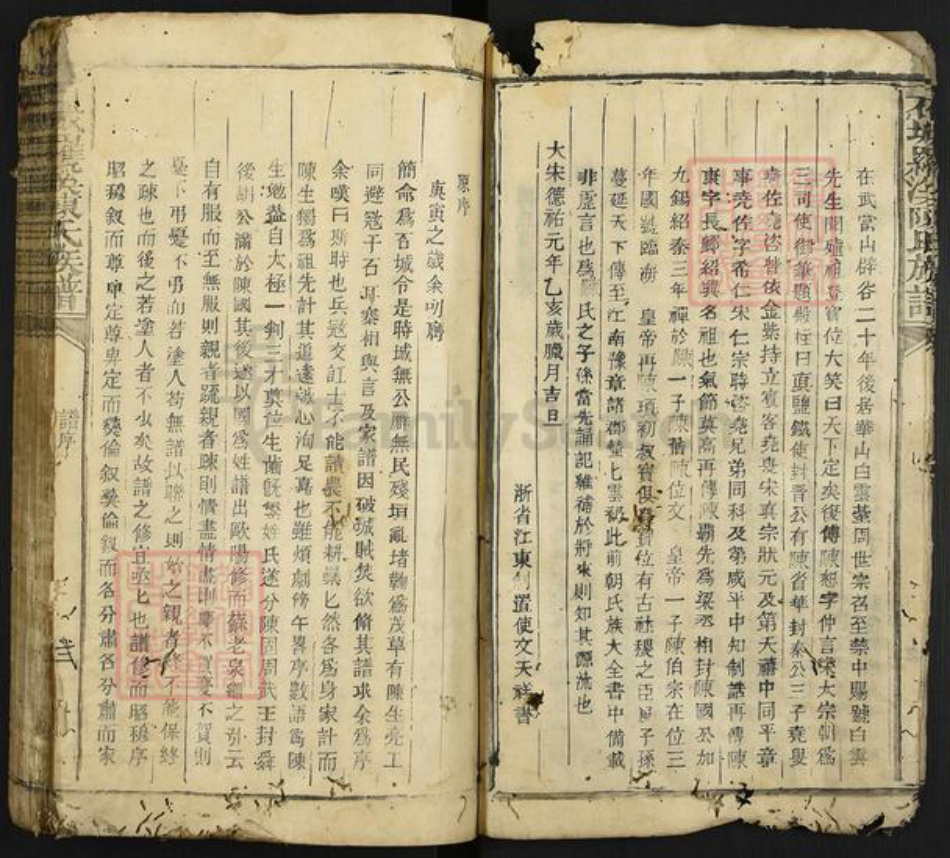 在武當山辟谷二十年後居華山白雲臺周世宗召至禁中賜號白雲
先生聞祖登寶位大笑曰天下定矣後傳陳恕字仲言宋太宗朝爲
三司使御筆題殿柱曰真鹽鐵使封晋公有陳省華封秦公三子堯叟
堯佐堯咨皆依金紫持立賓客堯叟宋真宗狀元及第天禧中同平章
事堯佐字希仁宋仁宗時咨堯兄弟同科及第咸平中知制誥再傳陳
康字長卿紹興名祖也氣節英高再傳陳霸先爲梁丞相封陳國公加
九錫紹泰三年禪於陳一子陳舊陳位文 皇帝一子陳伯宗在位三
年國號臨海 皇帝再陳頊初叔寶俱登寶位有古社稷之臣子孫
蔓延天下傳至江南豫章諸郡此前朝氏族大全書中備載
非虛言也陳氏之子孫當先誦記雖補於將來則知其源流也
大宋德祐元年乙亥歲臘月吉旦
浙省江東制置使文天祥書
原序
庚寅之歲余叨膺
簡命爲百城令是時城無公廨無民殘垣亂堵鞠爲茂草有陳生亮工
同避寇于石寨相與言及家譜因破城賊焚欲脩其譜求余爲序
余嘆曰斯時也兵寇交訌士不能讀農不能耕然各爲身家計而
陳生獨爲祖先計其追遠誠心洵足嘉也雖煩劇傍午畧序數語爲陳
生勉蓋自太極一判三才奠位生齒既繁姓氏遂分陳固周武王封舜
後胡公滿於陳國其後遂以國爲姓譜出歐陽修而蘇老泉繼之引云
自有服而至無服則親者踈親者踈則情盡情盡則慶不賀憂不賀則
慶不弔憂不弔而若塗人苟無譜以聯之則始之親者終不能保終
之踈也而後之若塗人者不少矣故譜之修宜亟亟也譜修而昭穆序
昭穆叙而尊卑定尊卑定而彝倫叙彝倫叙而各分肅各分肅而家
譜序
陳氏族譜